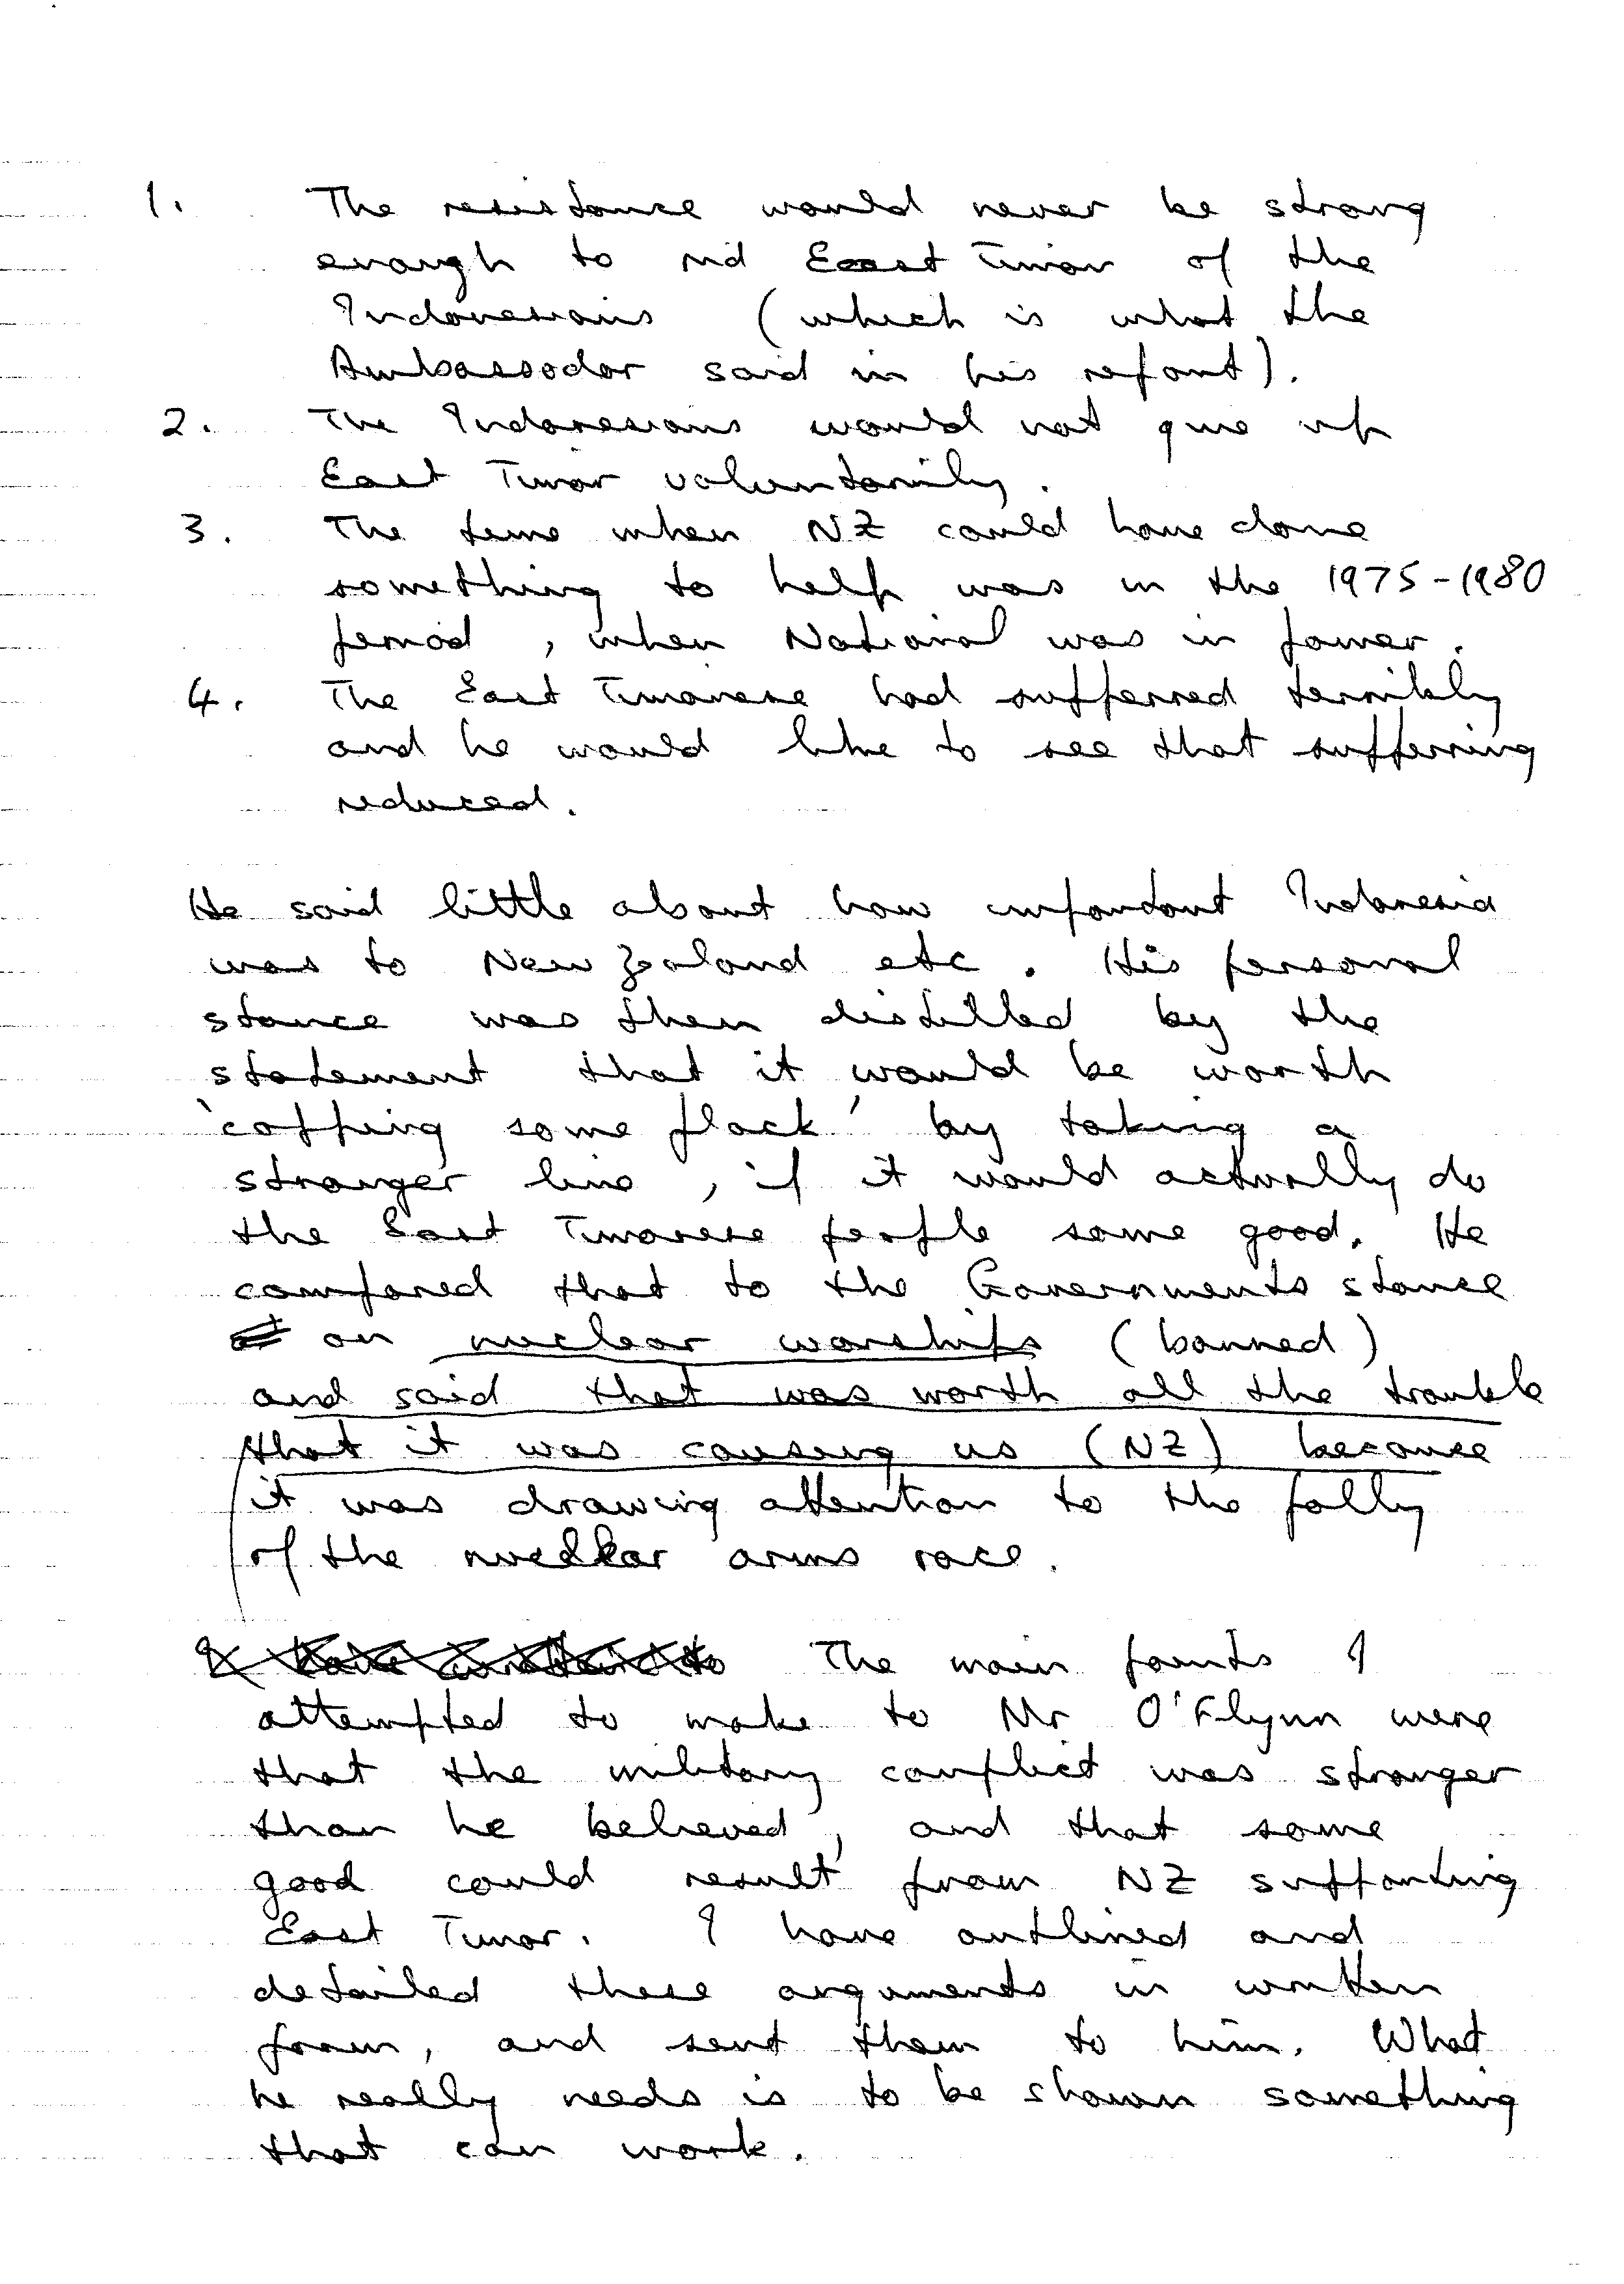 1. The resistance would never be strong
enough to rid East Timor of the
Indonesians (which is what the
Ambassador said in his report).
2. The Indonesians would not give up
East Timor voluntarily.
3. The time when NZ could have done
something to help was in the 1975-1980
period, when National was in power.
4. The East Timorese had sufferred terribly
and he would like to see that sufferring
reduced.
He said little about how important Indonesia
was to New Zealand etc. His personal
stance was then distilled by the
statement that it would be worth
'copping some flack' by taking a
stronger line, if it would actually do
the East Timorese people some good. He
compared that to the Governments stance
on nuclear warships (banned)
and said that was worth all the trouble
that it was causing us (NZ) because
it was drawing attention to the folly
of the nuclear arms race.
The main points I
attempted to make to Mr O'Flynn were
that the military conflict was stronger
than he believed, and that some
good could result from NZ supporting
East Timor. I have outlined and
detailed these arguments in written
form, and sent them to him. What
he really needs is to be shown something
that can work.